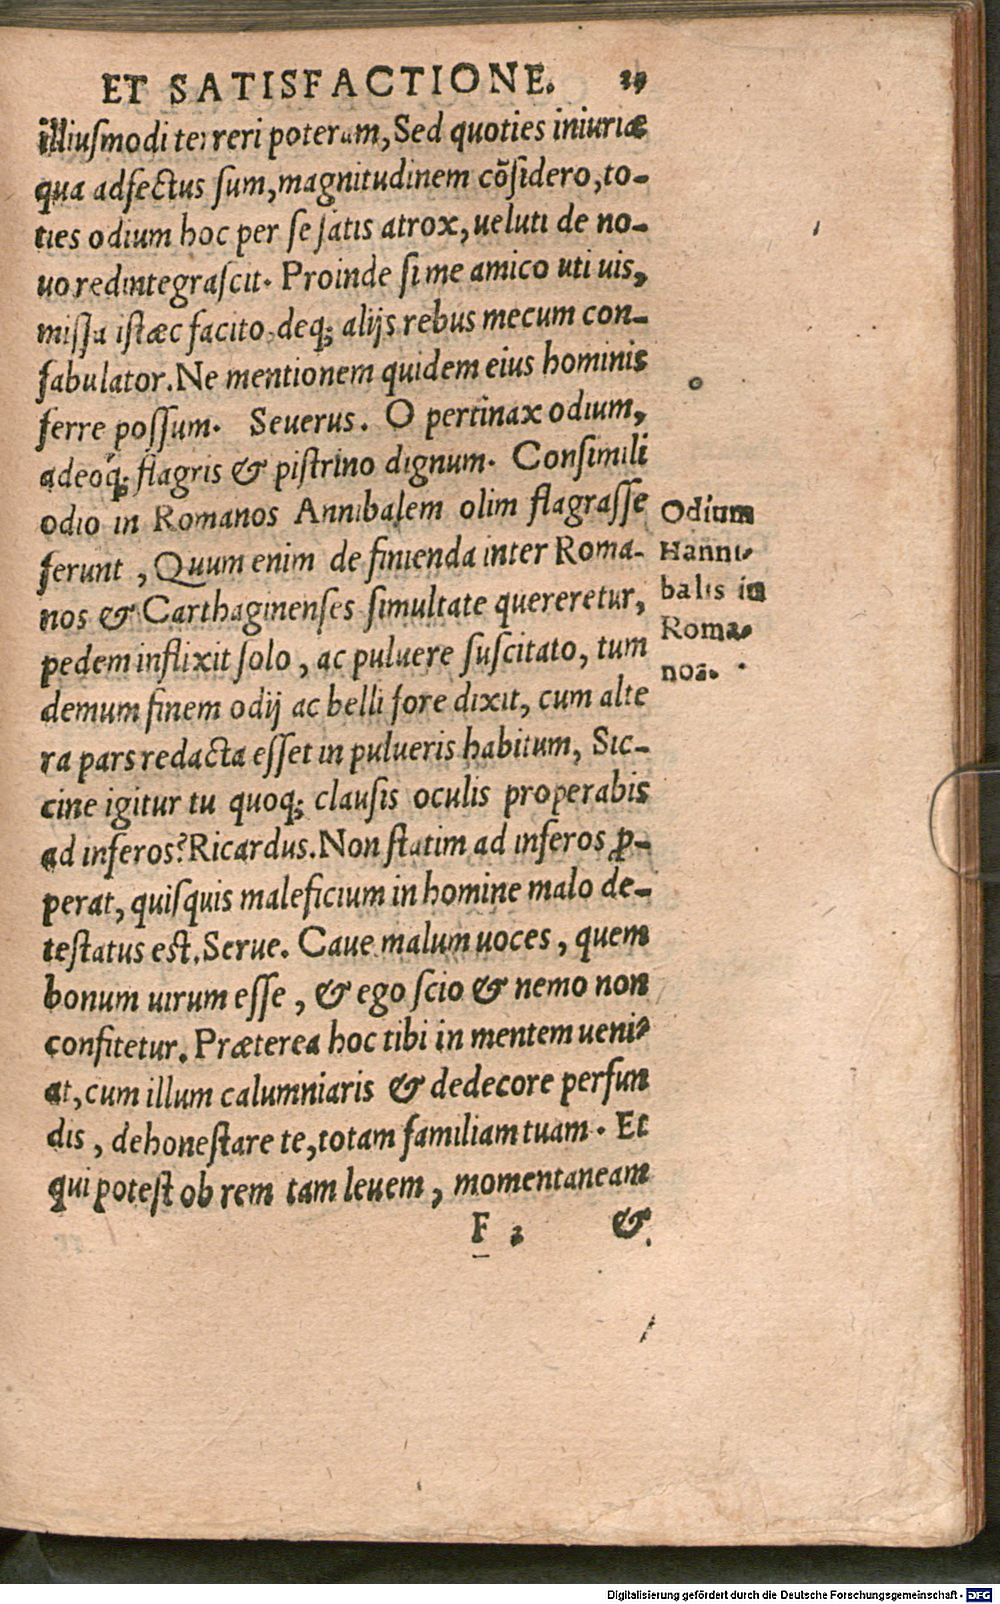 ET SATISFACTIONE.
illiusmodi terreri poteram, Sed quoties iniuriæ
qua adfectus sum, magnitudinem cõsidero, to-
ties odium hoc per se satis atrox, ueluti de no-
uo redintegrascit. Proinde si me amico uti uis,
missa istæc facito, deq; alijs rebus mecum con-
fabulator. Ne mentionem quidem eius hominis
ferre possum. Seuerus. O pertinax odium,
adeoq́; flagris & pistrino dignum. Consimili
odio in Romanos Annibalem olim flagrasse
ferunt, Quum enim de finienda inter Roma-
nos & Carthaginenses simultate quereretur,
pedem inflixit solo, ac puluere suscitato, tum
demum finem odij ac belli fore dixit, cum alte
ra pars redacta esset in pulueris habitum, Sic-
cine igitur tu quoq; clausis oculis properabis
ad inferos? Ricardus. Non statim ad inferos ꝓ-
perat, quisquis maleficium in homine malo de-
testatus est. Serue. Caue malum uoces, quem
bonum uirum esse, & ego scio & nemo non
confitetur. Præterea hoc tibi in mentem ueni-
at, cum illum calumniaris & dedecore perfun
dis, dehonestare te, totam familiam tuam. Et
qui potest ob rem tam leuem, momentaneam
F 2 &
Odium
Hanni-
balis in
Roma-
nos.
Digitalisierung gefördert durch die Deutsche Forschungsgemeinschaft - DFG